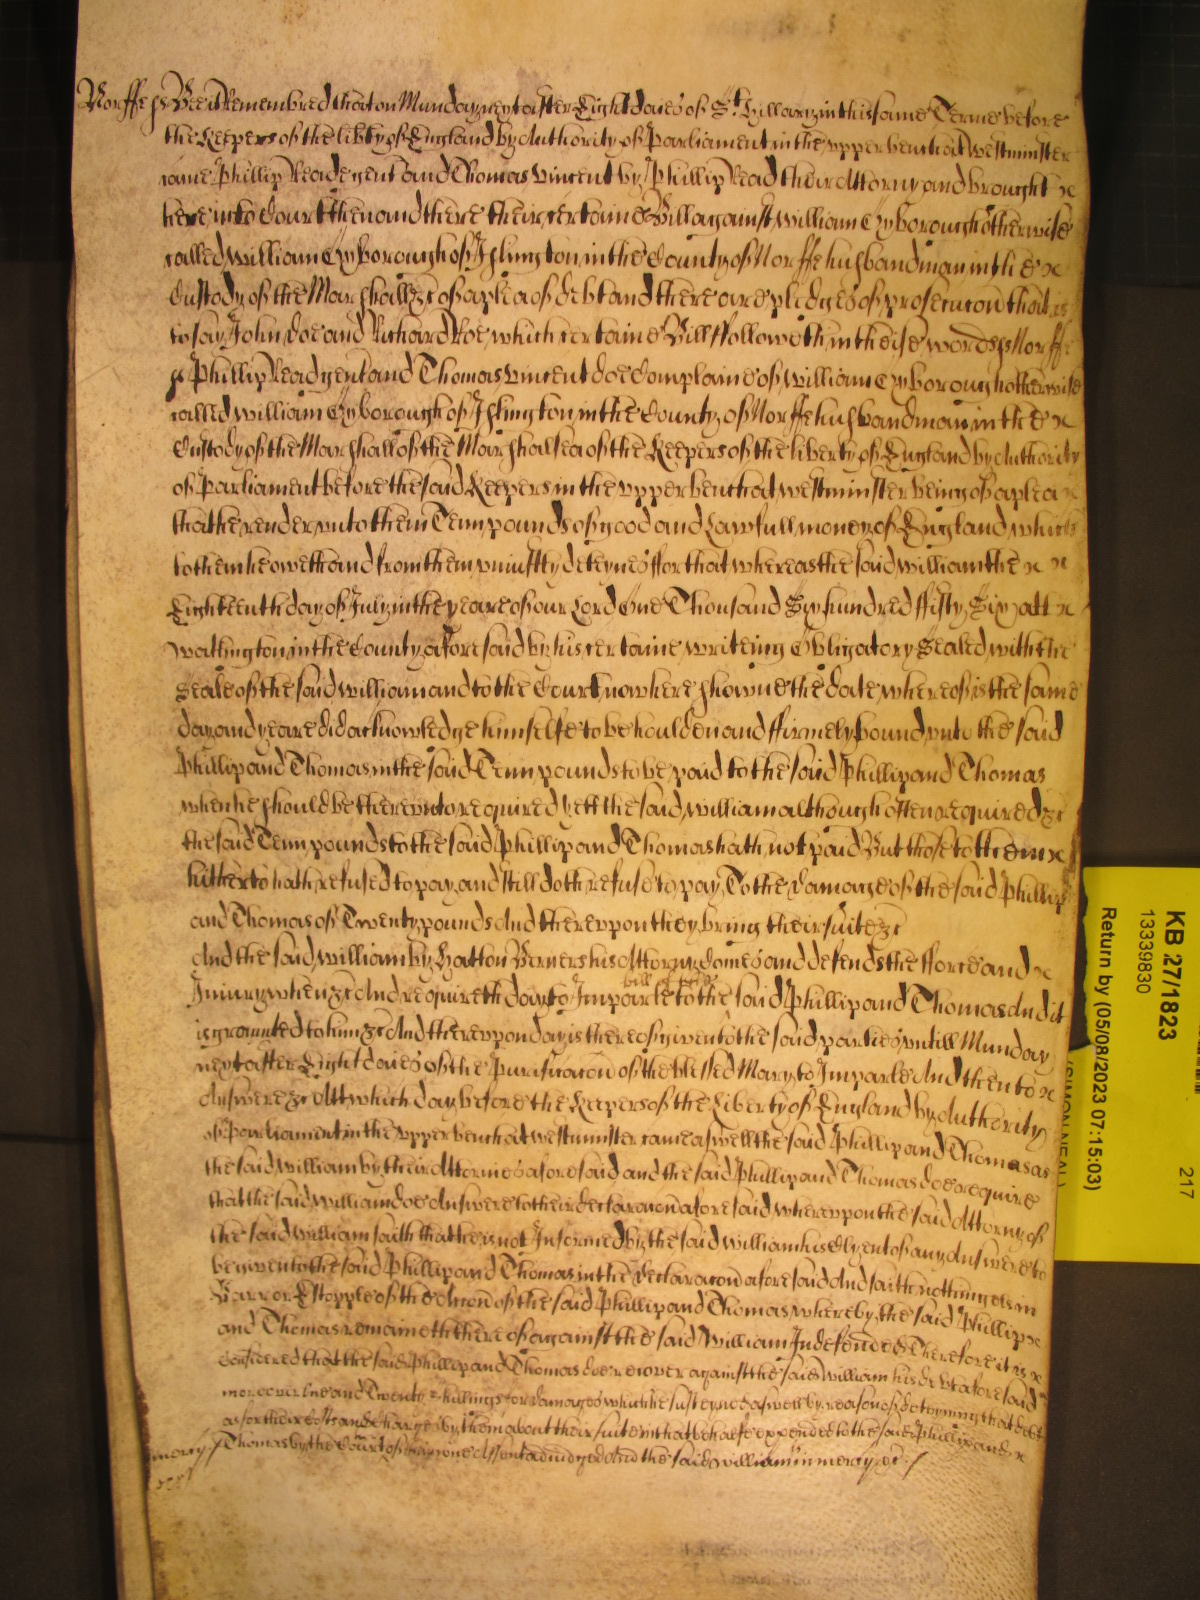 Norff ss Bee it Remembred that on Munday next after Eight daies of St. Hillary in this same Terme before
the Keepers of the libty of England by Authority of Parliament in the upper bench at Westminster
came Phillip Read gent and Thomas Vincent by Phillip Read their Attorny and brought
here into Court then and there their certaine Bill against William Oxborough otherwise
called William Oxborough of Islington in the County of Norff husbandman in the
Custody of the Marshall &c of a plea of debt and there are pledges of prosecucon that is
to say John Doe and Richard Roe which certaine Bill followeth in theise words ss Norff
ss Phillip Read gent and Thomas Vincent doe Complaine of William Oxborough otherwise
called William Oxborough of Islington in the County of Norff husbandman in the
Custody of the Marshall of the Marshalsea of the Keepers of the liberty of England by Authority
of Parliament before the said Keepers in the upper bench at Westminster being of a plea
that he render unto them Tenn pounds of good and Lawfull money of England which
to them he oweth and from them uniustly deteynes ffor that whereas the said William the
Eighteenth day of July in the yeare of our Lord One Thousand Six hundred ffifty Six att
Watlington in the County aforesaid by his certaine writeing Obligatory Sealed with the
Seale of the said William and to the Court now here showne the date whereof is the same
day and yeare did acknowledge himselfe to be houlden and ffirmely bound unto the said
Phillip and Thomas in the said Tenn pounds to be paid to the said Phillip and Thomas
when he should be thereunto required yett the said William although often required &c
the said Tenn pounds to the said Phillip and Thomas hath not paid But those to them
hitherto hath refused to pay and still doth refuse to pay To the damage of the said Phillip
and Thomas of Twenty pounds And thereupon they bring their suite &c
And the said William by Hatton Berners his Attorny Comes and defends the fforce and
Iniury when &c And requireth day to Imparle to the bill of the said Phillip and Thomas And it
is graunted to him &c And thereupon day is thereof given to the said parties untill Munday
next after Eight daies of the Purificacon of the blessed Mary to Imparle And then to
Answere &c Att which day before the Keepers of the Liberty of England by Authority
of Parliament in the upper bench at Westminster came aswell the said Phillip and Thomas as
the said William by their Attornies aforesaid and the said Phillip and Thomas doe require
that the said William doe Answere to their declaracon aforesaid whereupon the said Attorny of
the said William saith that he is not Informed by the said William his Clyent of any Answere to
be given to the said Phillip and Thomas in the declaracon aforesaid And saith nothing els in
Barr or Estopple of the Accon of the said Phillip and Thomas whereby the said Phillip
and Thomas remaineth thereof against the said William Indefended Therefore it is
Considered that the said Phillip and Thomas doe recover against the said William his debt aforesaid
moreover One and Twenty shillings for damages which he susteyned aswell by reason of deteyning that debt
as for their costs and charges by them about their suite in that behalfe expended to the said Phillip and
mercy Thomas by the Court of assent adiudged And the said William in mercy &c
KB 27/1823
13339830
217
Return by (05/08/2023 07:15:03)
(SIMON NEAL)